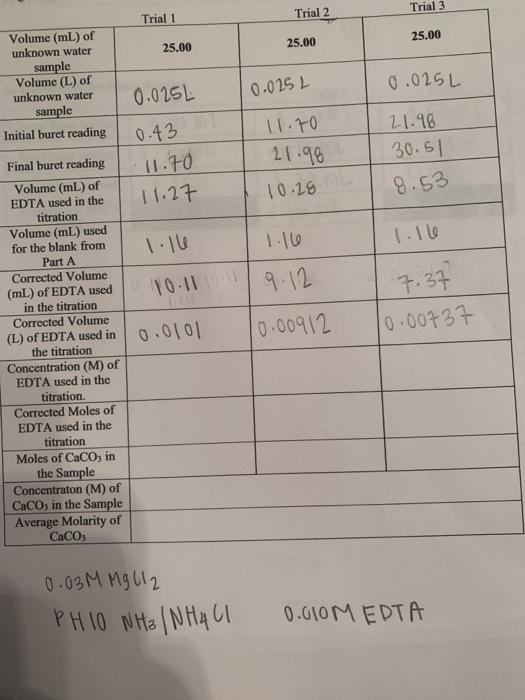 Trial 1 Trial 2 Trial 3
Volume (mL) of
unknown water
sample
25.00 25.00 25.00
Volume (L) of
unknown water
sample
0.025L 0.025L 0.025L
Initial buret reading 0.43 11.70 21.98
Final buret reading 11.70 21.98 30.51
Volume (mL) of
EDTA used in the
titration
11.27 10.28 8.53
Volume (mL) used
for the blank from
Part A
1.16 1.16 1.16
Corrected Volume
(mL) of EDTA used
in the titration
10.11 9.12 7.37
Corrected Volume
(L) of EDTA used in
the titration
0.0101 0.00912 0.00737
Concentration (M) of
EDTA used in the
titration.
Corrected Moles of
EDTA used in the
titration
Moles of CaCO₃ in
the Sample
Concentraton (M) of
CaCO₃ in the Sample
Average Molarity of
CaCO₃
0.03M MgCl2
PH10 NH3/NH4Cl 0.010M EDTA